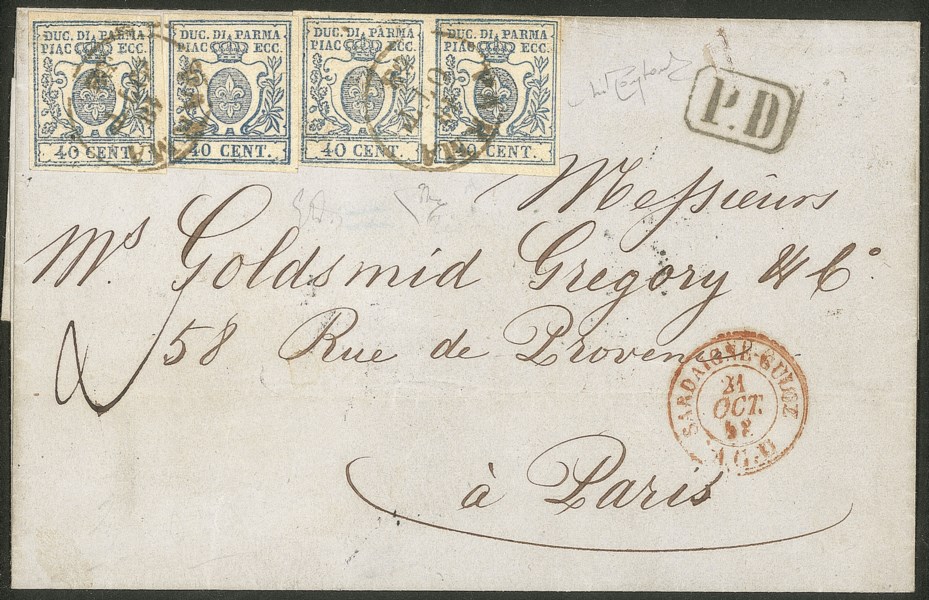 DUC. DI PARMA DUC. DI PARMA DUC. DI PARMA DUC. DI PARMA
PIAC ECC. PIAC ECC. PIAC ECC. PIAC ECC.
40 CENT. 40 CENT. 40 CENT. 40 CENT.
P.D
Messieurs
Ms Goldsmid Gregory & Co
58 Rue de Provence
SARDAIGNE
21
OCT.
à Paris